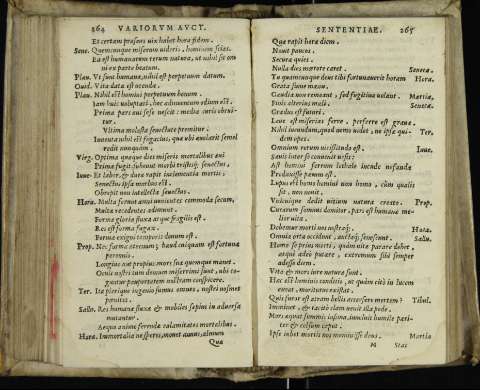 264 VARIORVM AVCT.
Et certam præsens uix habet hora fidem.
Sene. Quemcunque miserum uideris, hominem scias.
Ea est humanarum rerum natura, ut nihil sit omni
ex parte beatum.
Plau. Vt sunt humana, nihil est perpetuum datum.
Ouid. Vita data est utenda.
Plau. Nihil est homini perpetuum bonum.
Iam huic uoluptati, hoc adiunctum odium est.
Prima pars aut sese nescit: media curis obruitur.
Vltima molesta senectute premitur.
Inuenta nihil est fugacius, quæ ubi auolarit semel
redit nunquam.
Virg. Optima quæque dies miseris mortalibus æui
Prima fugit: subeunt morbi tristisq; senectus,
Iuue. Et labor, & duræ rapit inclementia mortis;
Senectus ipsa morbus est.
Obrepit non intellecta senectus.
Hora. Multa ferunt anni uenientes commoda secum,
Multa recedentes adimunt.
Forma gloria fluxa atque fragilis est.
Res est forma fugax.
Forma exigui temporis donum est.
Prop. Nec forma æternum; haud cuiquam est fortuna
perennis.
Longius aut propius mors sua quemque manet.
Omnis nostri cum demum miserrimi sunt, ubi
Ter. Ita plerique ingenio sumus omnes, nostri nosmet
pœnitet.
Salu. Res humanæ fluxæ & mobiles sæpius in aduersa
mutantur.
Aequo animo ferendæ calamitates mortalibus.
Hora. Immortalia ne speres, monet annus, almum
Quæ
SENTENTIAE. 265
Quæ rapit hora diem.
Nemo paucos.
Secura quies.
Nulla dies mœrore caret. Seneca.
Tu quamcunque deus tibi fortunauerit horam Hora.
Grata sume manu.
Gaudia non remanent, sed fugitiua uolant. Martia.
Finis alterius mali Senecæ.
Gradus est futuri.
Leue est miserias ferre, perferre est graue.
Nihil iucundum, quod uenus uidet, ne ipsæ quidem
opes. Ter.
Omnium rerum uicissitudo est. Iuue.
Sauis inter se conuenit ursis:
Ast homini ferrum letale incude nefanda
Produxisse parum est.
Lupus est homo homini non homo, cum qualis
sit, non nouit.
Vnicuique dedit uitium natura creato. Prop.
Curarum somnus domitor, pars est humanæ melior
uitæ.
Debemur morti nos nostraq;. Hora.
Omnia orta occidunt, auctaq; senescunt. Salu.
Homo se prius morti, quàm uitæ parare debet,
atqui adeo putare, extremum sibi semper
adesse diem.
Vita & mors iure natura sunt.
Hac est hominis conditio, ut quàm citò in lucem
eunt, morituros existat.
Quis furor est atram bellis accersere mortem? Tibul.
Imminet, & tacito clam uenit illa pede.
Mors æquat summis infima, iunxit humile pariter
& celsum caput.
Ipse iubet mortis nos meminisse deus. Martia
M Stat